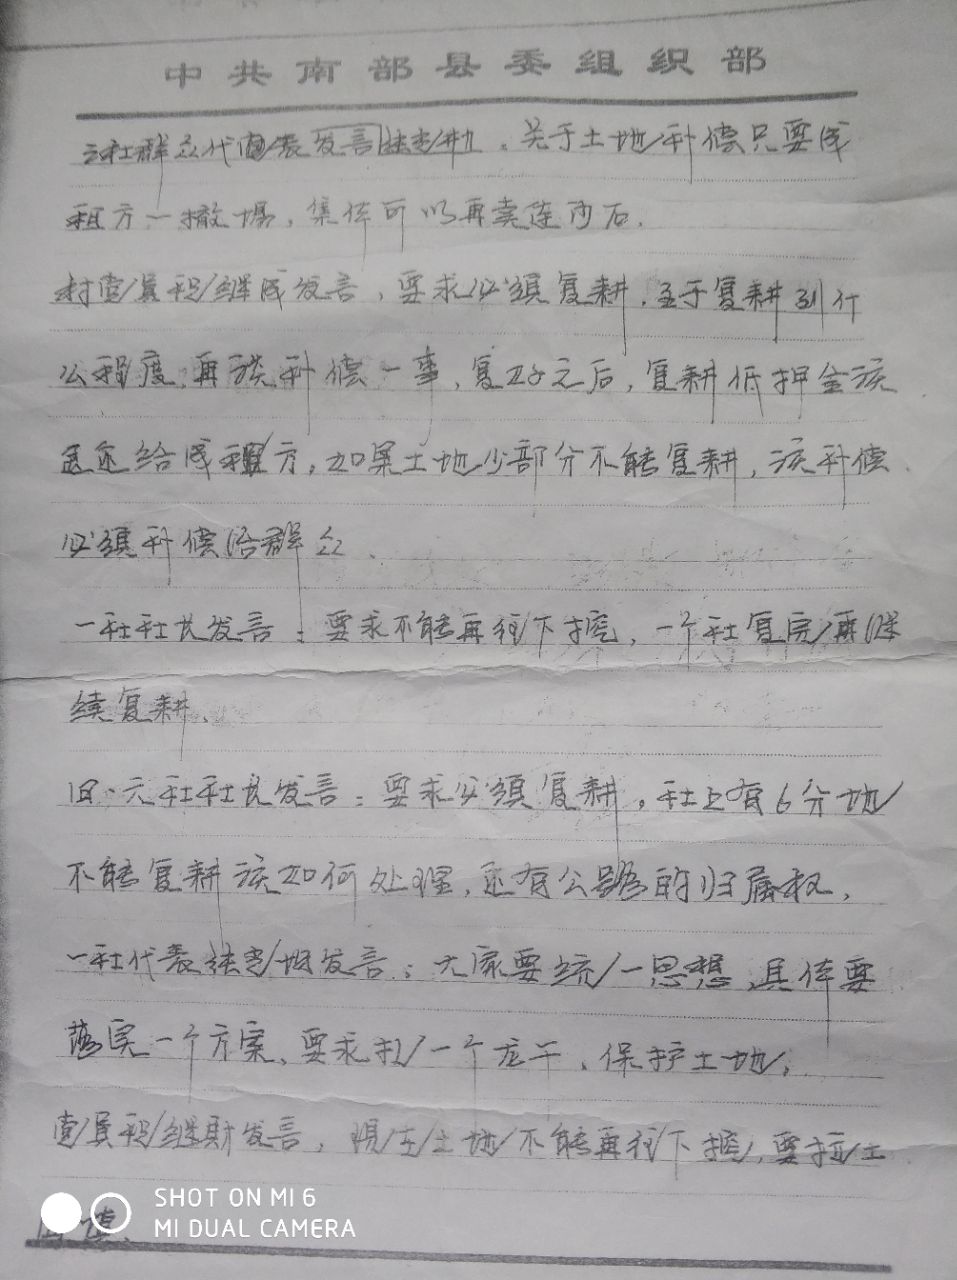 中共南部县委组织部
社群众代表发言 。关于土地补偿只要成
租方一撤场，集体可以再卖连沙石.
村党员程继成发言，要求必须复耕，至于复耕到什
么程度，再谈补偿一事，复好之后，复耕低押金该
还给成租方，如果土地少部分不能复耕，该补偿
必须补偿给群众.
一社社长发言：要求不能再往下挖，一个社复完再继
续复耕.
六社社长发言：要求必须复耕，社上有6分地
不能复耕该如何处理，还有公路的归属权，
一社代表 发言：大家要统一思想，具体要
落实一个方案，要求打一个龙干，保护土地，
党员程继财发言，现在土地不能再往下挖，要拉土
回填.
SHOT ON MI 6
MI DUAL CAMERA